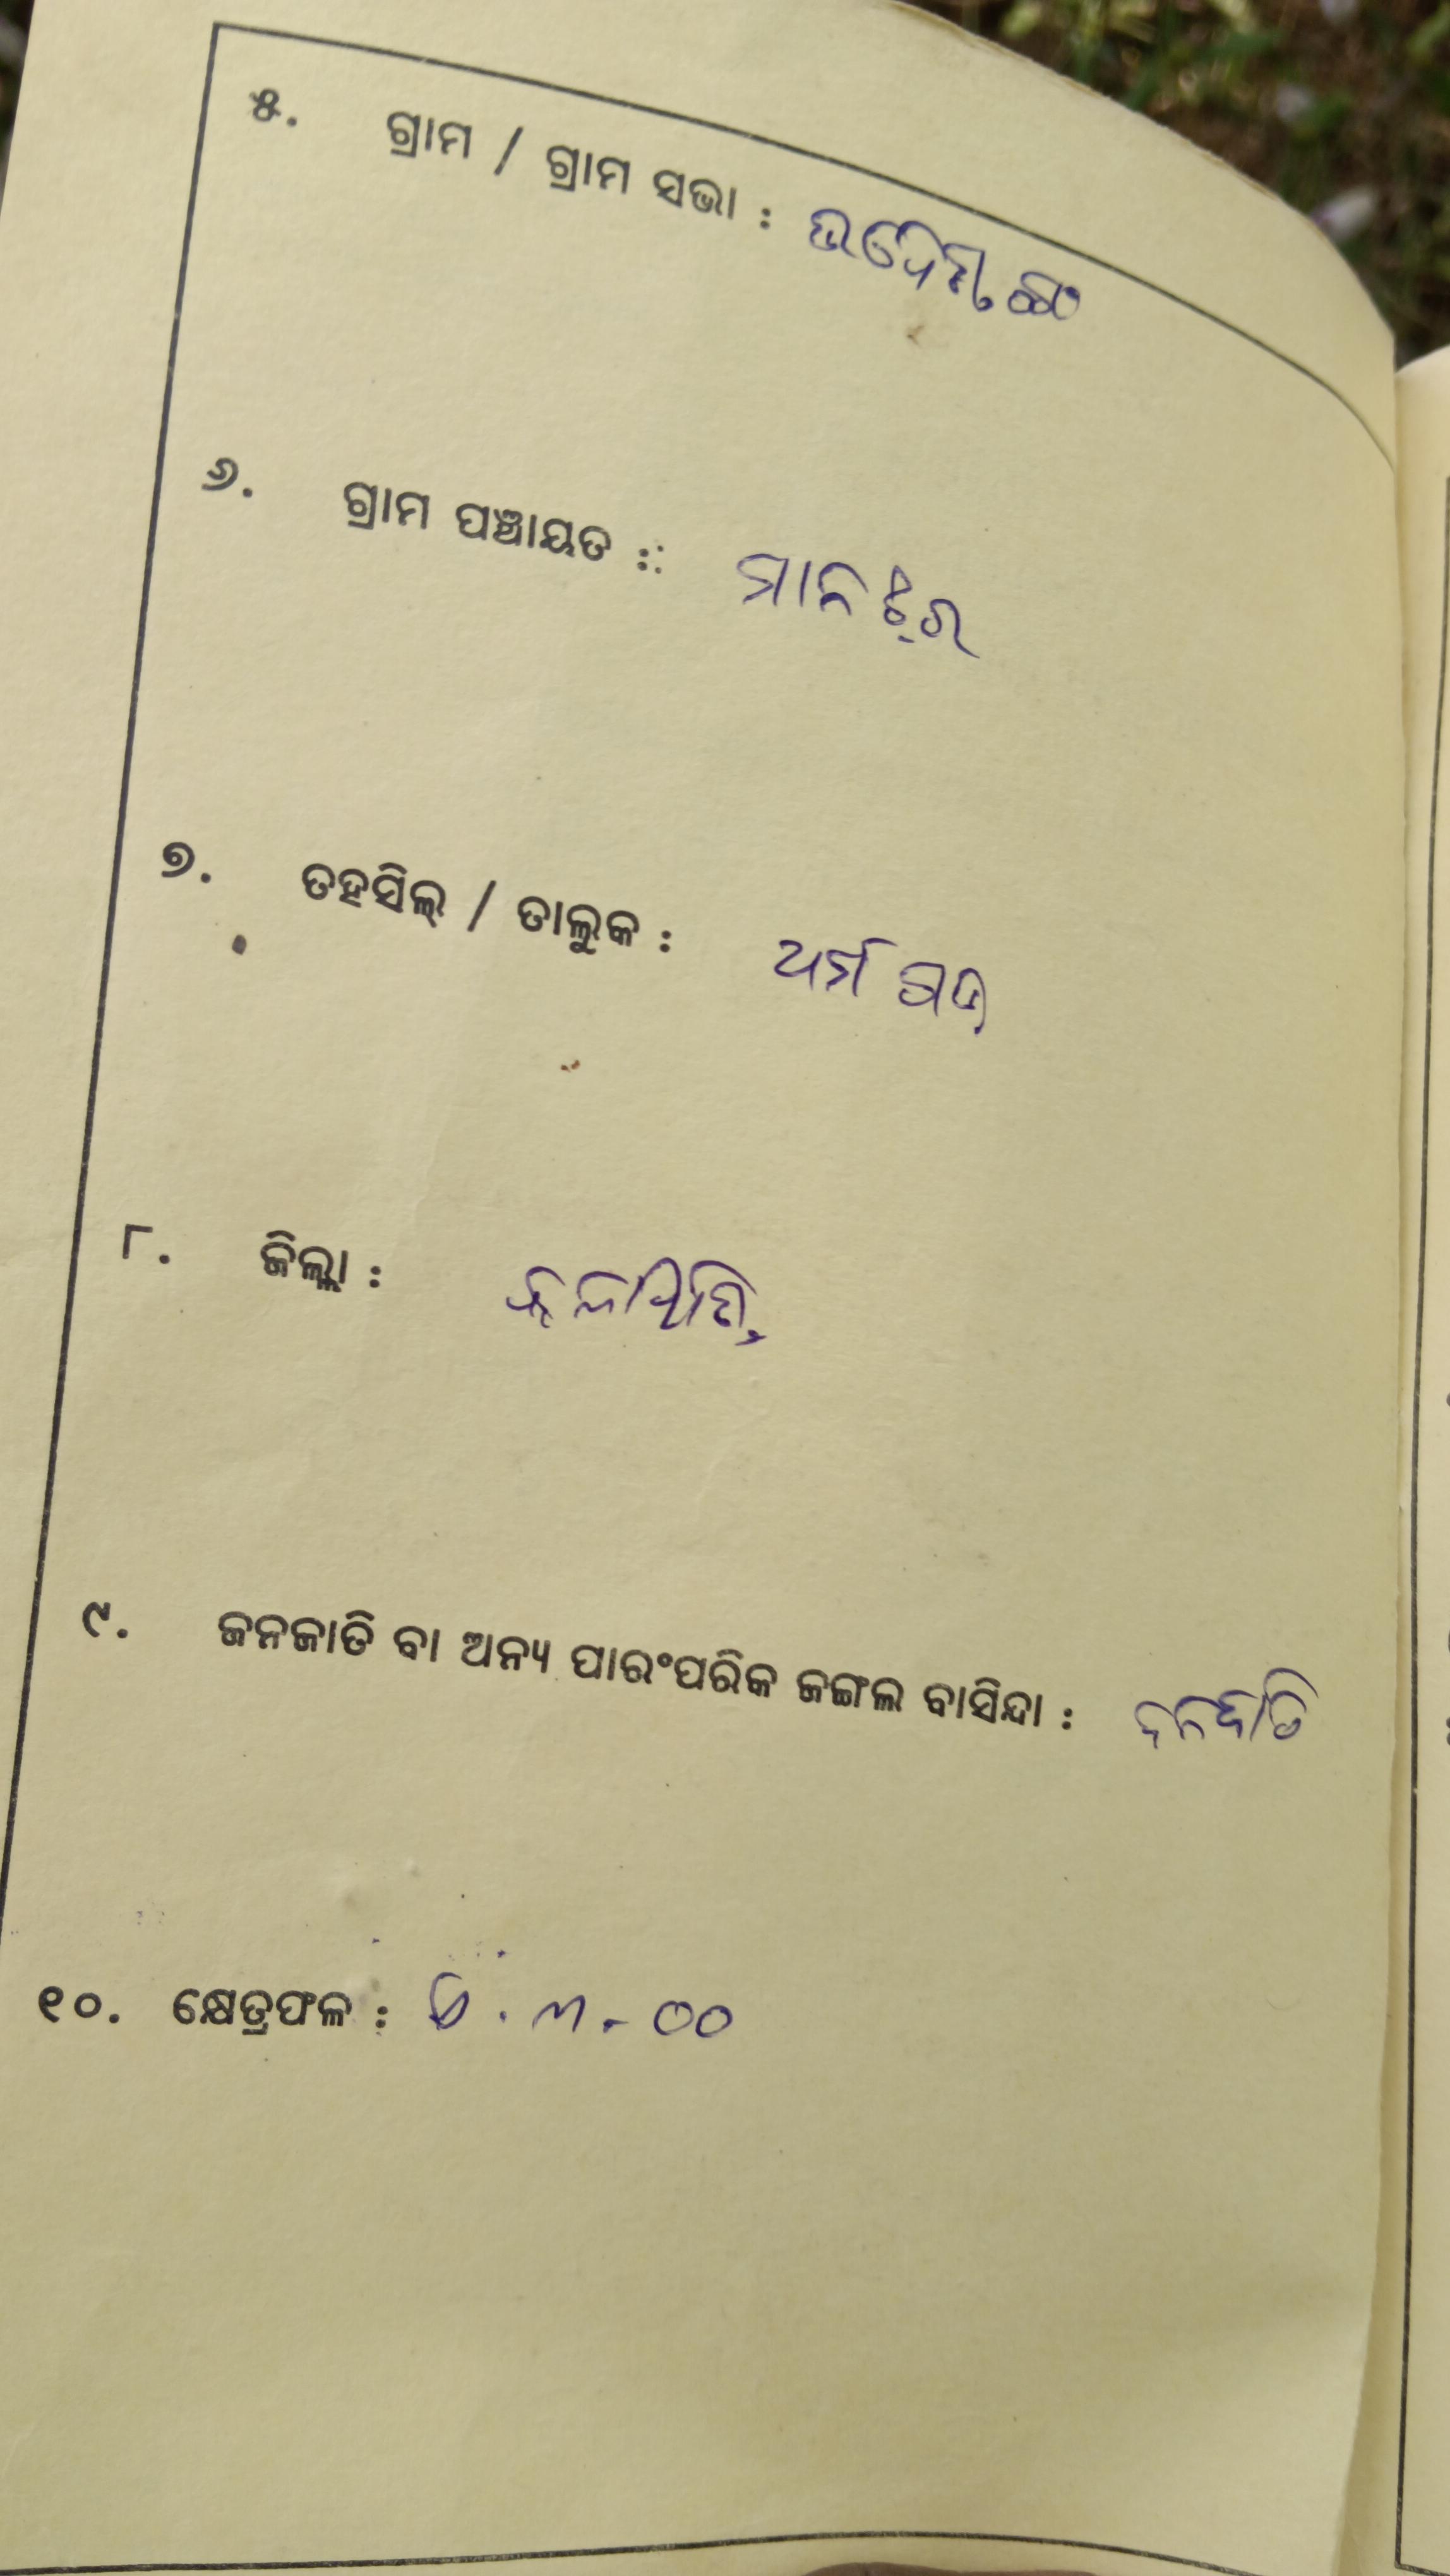 ୫. ଗ୍ରାମ / ଗ୍ରାମ ସଭା :
୬. ଗ୍ରାମ ପଞ୍ଚାୟତ : ମାନ
୭. ତହସିଲ୍ / ତାଲୁକ : ଧର୍ମ ଗଡ଼
୮. ଜିଲ୍ଲା : କଳାହାଣ୍ଡି
୯. ଜନଜାତି ବା ଅନ୍ୟ ପାରଂପରିକ ଜଙ୍ଗଲ ବାସିନ୍ଦା : ଜନଜାତି
୧୦. କ୍ଷେତ୍ରଫଳ :